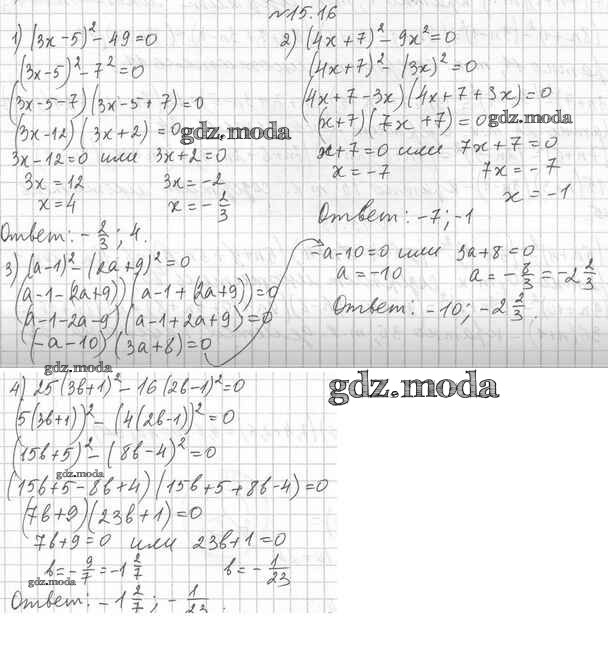 №15.16
1) (3x-5)²-49=0
(3x-5)²-7²=0
(3x-5-7)(3x-5+7)=0
(3x-12)(3x+2)=0
3x-12=0 или 3x+2=0
3x=12 3x=-2
x=4 x=-2/3
Ответ: -2/3; 4.
2) (4x+7)²-9x²=0
(4x+7)²-(3x)²=0
(4x+7-3x)(4x+7+3x)=0
(x+7)(7x+7)=0
x+7=0 или 7x+7=0
x=-7 7x=-7
x=-1
Ответ: -7; -1
3) (a-1)²-(2a+9)²=0
(a-1-(2a+9))(a-1+(2a+9))=0
(a-1-2a-9)(a-1+2a+9)=0
(-a-10)(3a+8)=0
-a-10=0 или 3a+8=0
a=-10 a=-8/3=-2 2/3
Ответ: -10; -2 2/3.
4) 25(3b+1)²-16(2b-1)²=0
(5(3b+1))²-(4(2b-1))²=0
(15b+5)²-(8b-4)²=0
(15b+5-8b+4)(15b+5+8b-4)=0
(7b+9)(23b+1)=0
7b+9=0 или 23b+1=0
b=-9/7=-1 2/7 b=-1/23
Ответ: -1 2/7; -1/23.
gdz.moda
gdz.moda
gdz.moda
gdz.moda
gdz.moda
gdz.moda